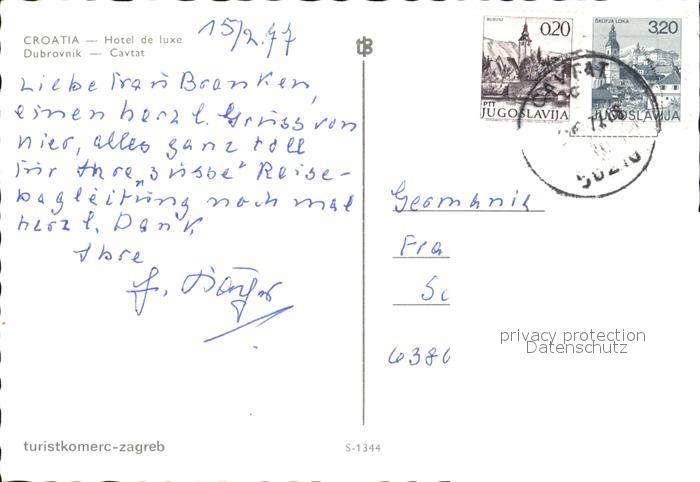 15/2.77
CROATIA — Hotel de luxe
Dubrovnik — Cavtat
Liebe Frau Branken,
einen herzl. Gruss von
hier, alles ganz toll
für Ihre „süsse" Reise-
bagleitung noch mal
herzl. Dank
Ihre
tB
BLEDSKI
0.20
PTT
JUGOSLAVIJA
ŠKOFJA LOKA
3,20
JUGOSLAVIJA
CAVTAT
50210
Germania
Fra
Sc
6380
privacy protection
Datenschutz
turistkomerc-zagreb
S-1344